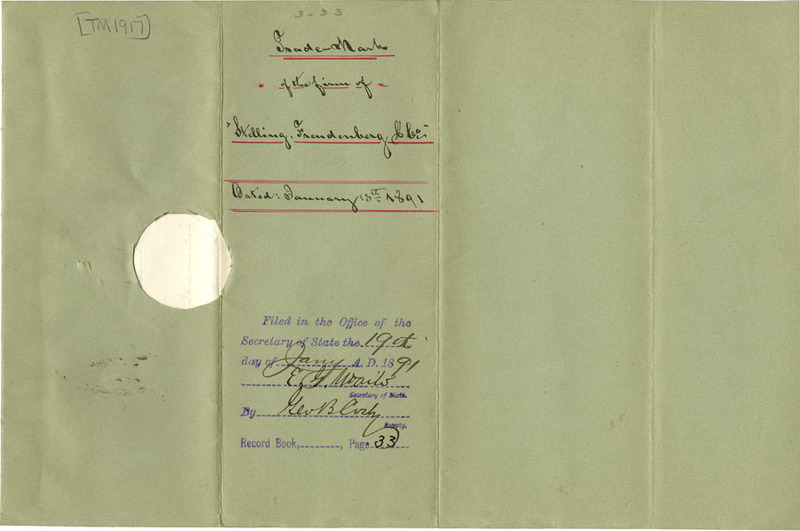 [TM1917]
3-33
Trade-Mark
of the firm of
"Stelling, Freudenberg, & Co."
Dated: January 13th 1891
Filed in the Office of the
Secretary of State the 19th
day of Jany A. D. 1891
E. G. Waite
Secretary of State.
By Geo B Cosby
Deputy.
Record Book, , Page 33